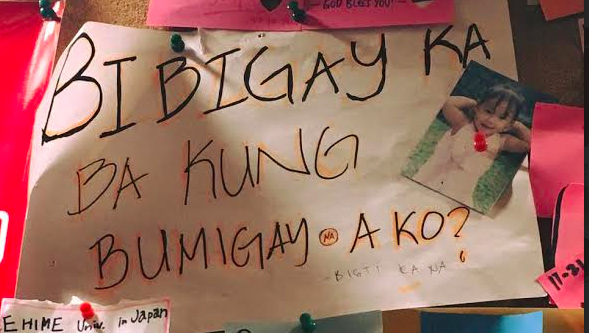 GOD BLESS YOU!
BIBIGAY KA
BA KUNG
BUMIGAY NA AKO?
- BIGTI KA NA
11-21
EHIME Univ. in Japan